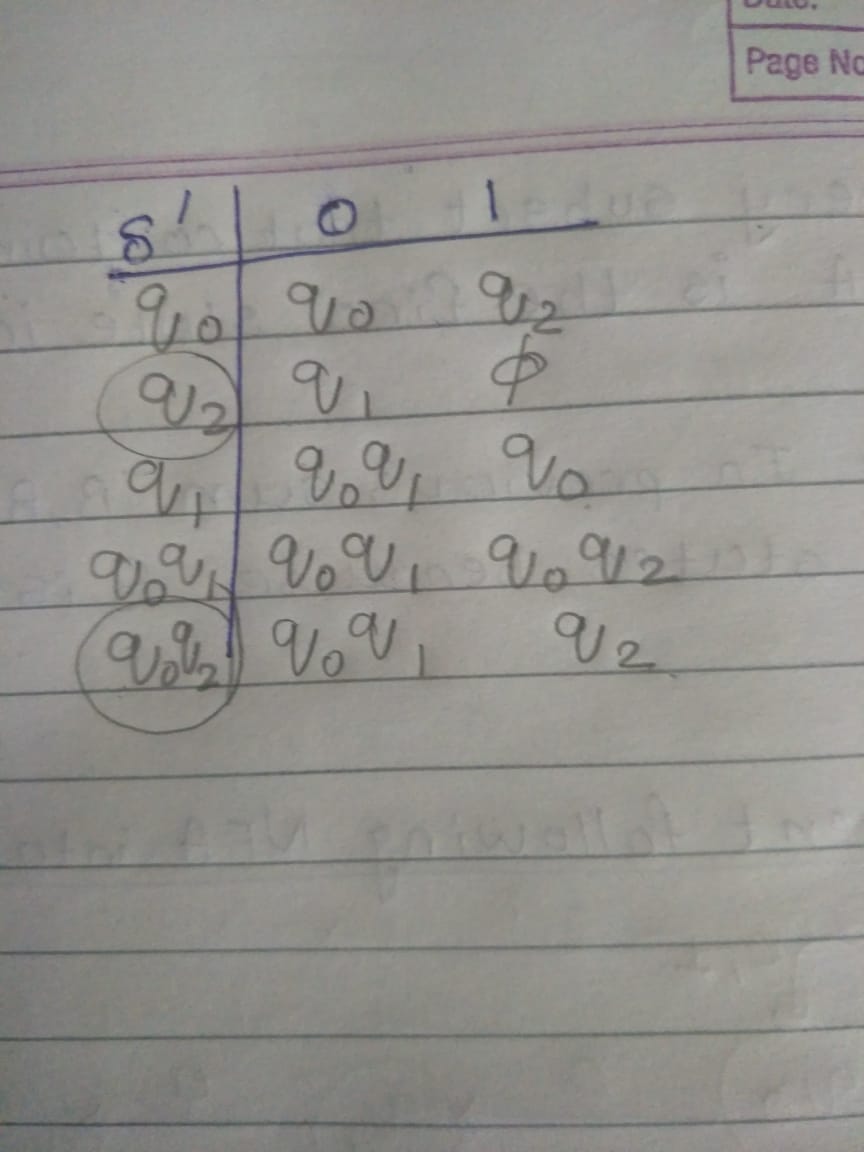 Page No
δ' | 0 1
q0 | q0 q2
q2 | q1 ϕ
q1 | q0q1 q0
q0q1 | q0q1 q0q2
q0q2 | q0q1 q2